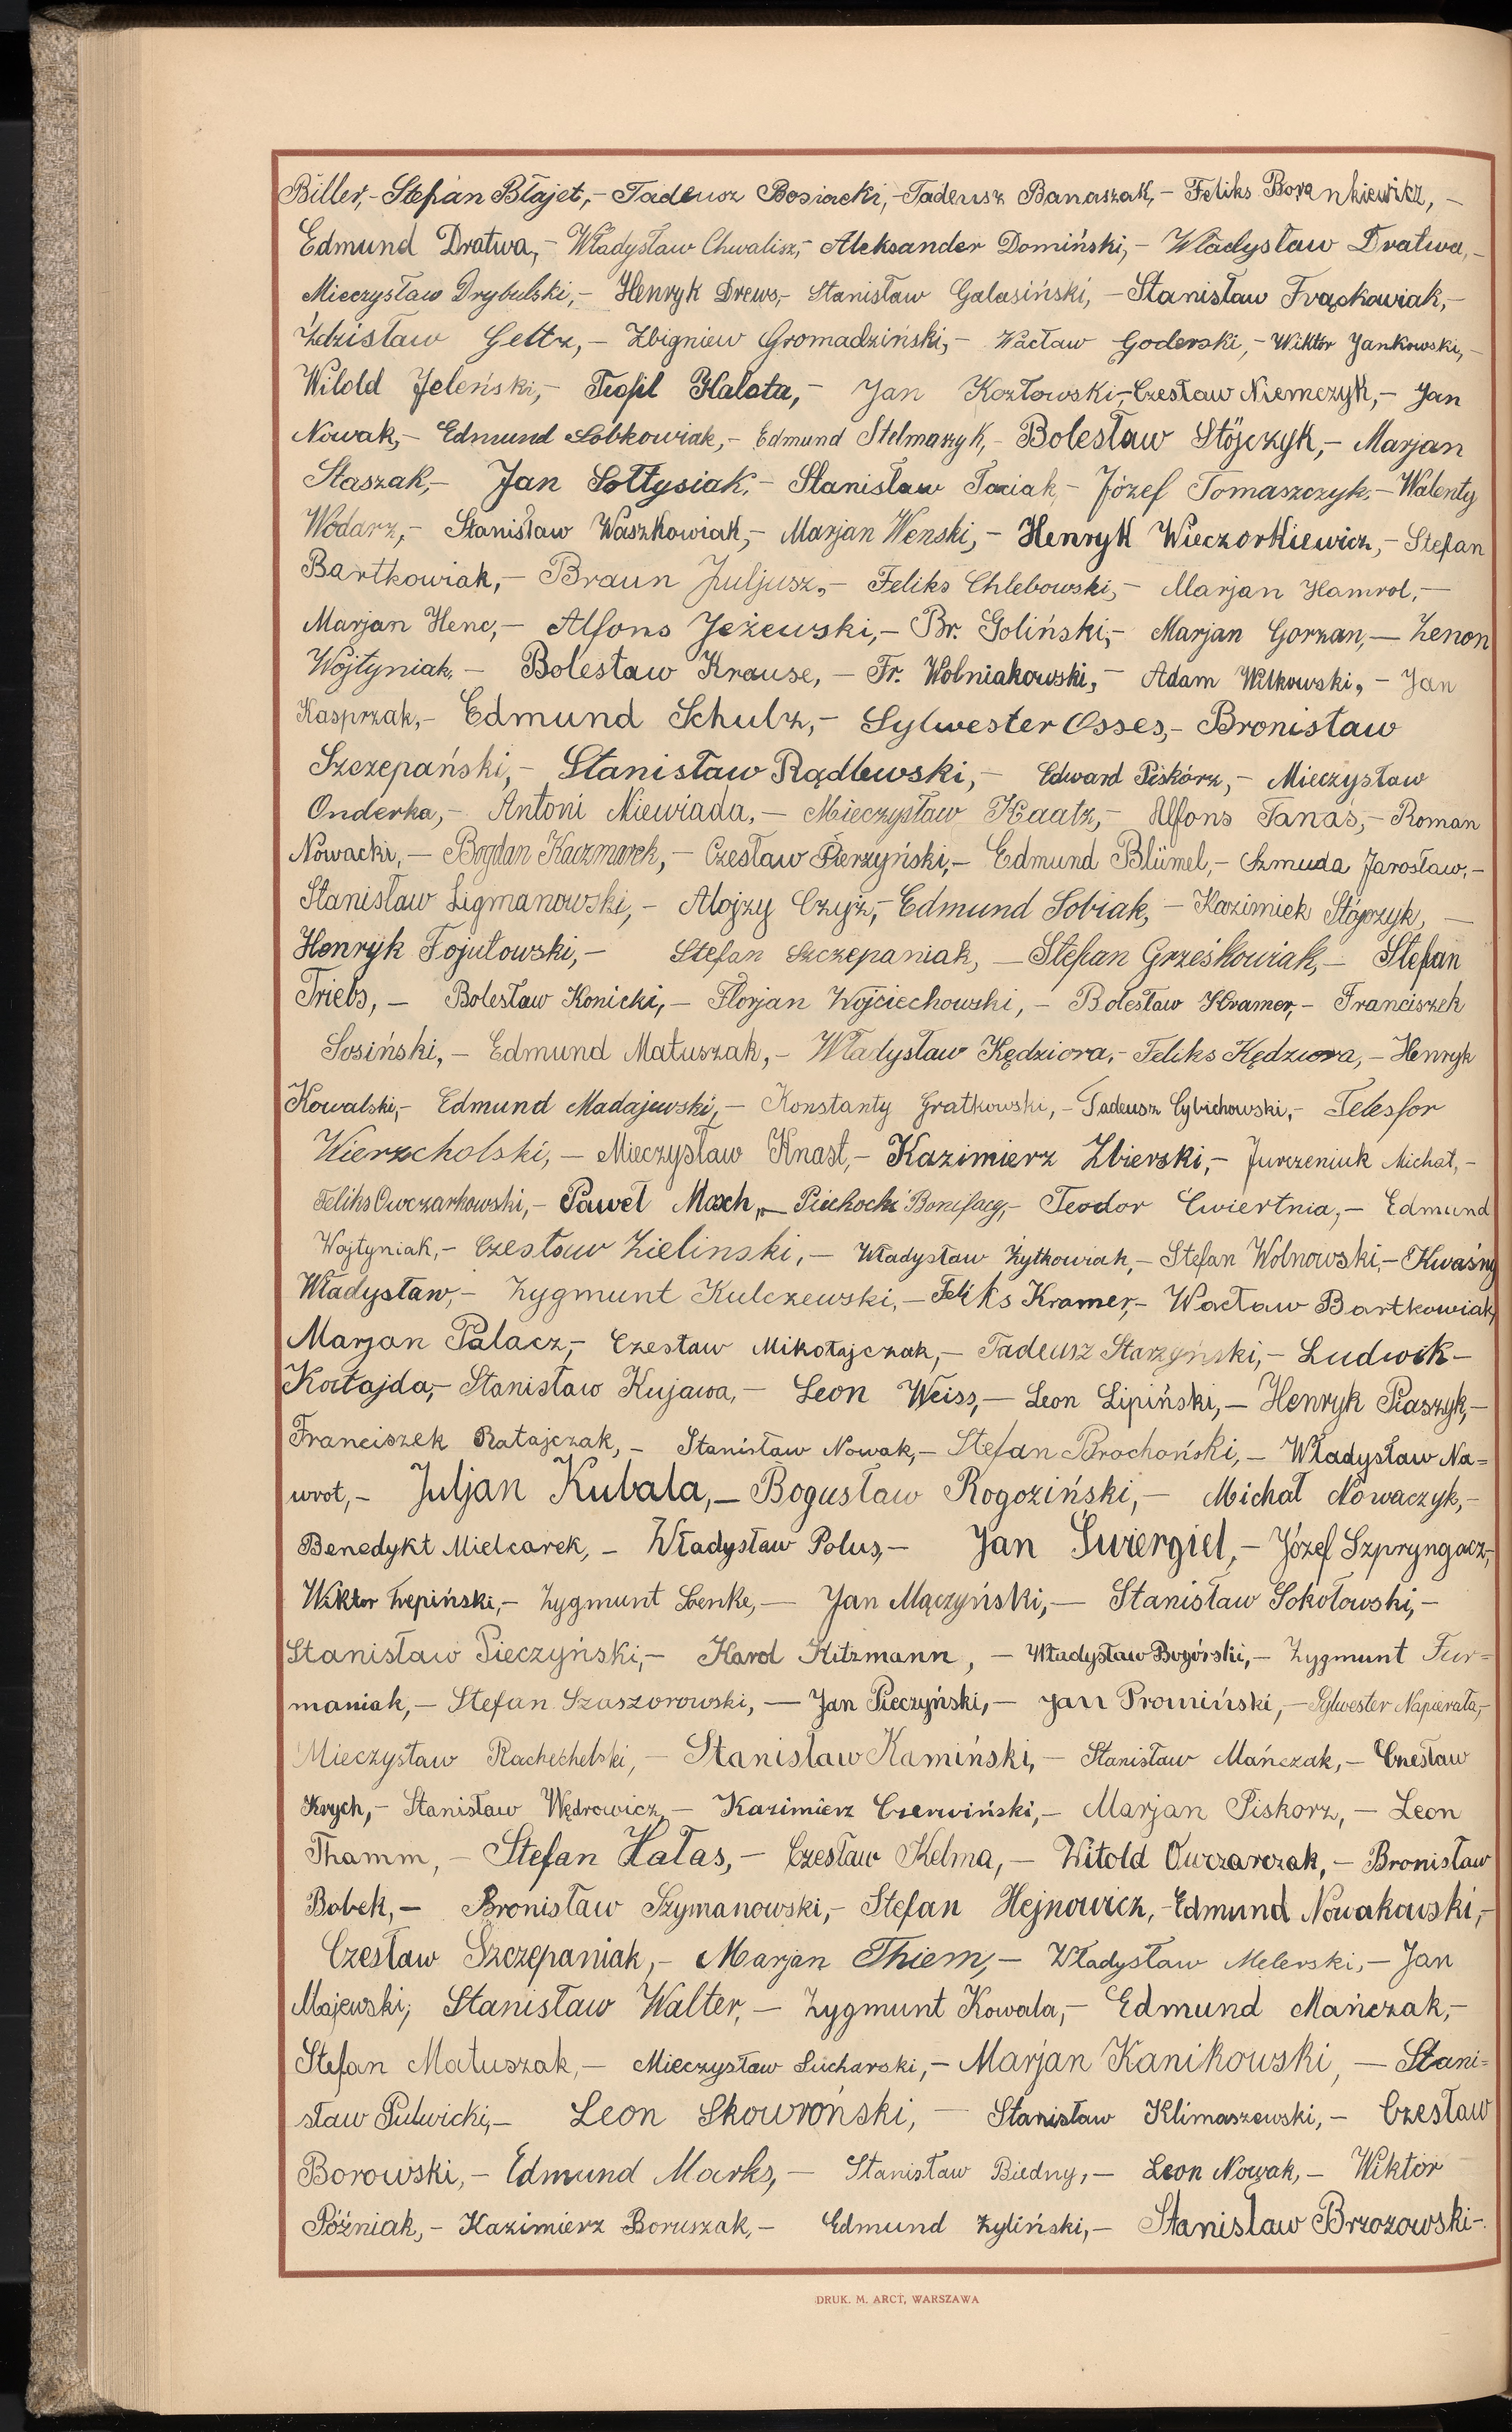 Biller,- Stefan Błajet,- Tadeusz Bosiacki,- Tadeusz Banaszak,- Feliks Borenkiewicz,-
Edmund Dratwa,- Władysław Chwalisz,- Aleksander Domiński,- Władysław Dratwa,-
Mieczysław Drybulski,- Henryk Drews,- Stanisław Galasiński,- Stanisław Frąckowiak,-
Zdzisław Geltz,- Zbigniew Gromadziński,- Wacław Goderski,- Wiktor Jankowski,-
Witold Jeleński,- Teofil Halata,- Jan Kozłowski,- Czesław Niemczyk,- Jan
Nowak,- Edmund Sobkowiak,- Edmund Stelmaszyk,- Bolesław Stójczyk,- Marjan
Staszak,- Jan Sołtysiak,- Stanisław Taciak,- Józef Tomaszczyk,- Walenty
Wodarz,- Stanisław Waszkowiak,- Marjan Wenski,- Henryk Wieczorkiewicz,- Stefan
Bartkowiak,- Braun Juljusz,- Feliks Chlebowski,- Marjan Hamrol,-
Marjan Henc,- Alfons Jeżewski,- Br. Goliński,- Marjan Gorzan,- Zenon
Wojtyniak,- Bolesław Krause,- Fr. Wolniakowski,- Adam Witkowski,- Jan
Kasprzak,- Edmund Schulz,- Sylwester Osses,- Bronisław
Szczepański,- Stanisław Rądlewski,- Edward Piskórz,- Mieczysław
Onderka,- Antoni Niewiada,- Mieczysław Kaatz,- Alfons Tanaś,- Roman
Nowacki,- Bogdan Kaczmarek,- Czesław Pierzyński,- Edmund Blümel,- Szmuda Jarosław,-
Stanisław Ligmanowski,- Alojzy Czyż,- Edmund Sobiak,- Kazimiek Stójczyk,-
Henryk Fojutowski,- Stefan Szczepaniak,- Stefan Grześkowiak,- Stefan
Triebs,- Bolesław Konicki,- Florjan Wojciechowski,- Bolesław Kramer,- Franciszek
Sosiński,- Edmund Matuszak,- Władysław Kędziora,- Feliks Kędziora,- Henryk
Kowalski,- Edmund Madajewski,- Konstanty Gratkowski,- Tadeusz Cybichowski,- Telesfor
Wierzcholski,- Mieczysław Knast,- Kazimierz Zbierski,- Jurczeniuk Michał,-
Feliks Owczarkowski,- Paweł Moch,- Piechocki Bonifacy,- Teodor Ćwiertnia,- Edmund
Wojtyniak,- Czesław Zielinski,- Władysław Żytkowiak,- Stefan Wolnowski,- Kwaśny
Władysław,- Zygmunt Kulczewski,- Feliks Kramer,- Wacław Bartkowiak,
Marjan Palacz,- Czesław Mikołajczak,- Tadeusz Starzyński,- Ludwik-
Kołajda,- Stanisław Kujawa,- Leon Weiss,- Leon Lipiński,- Henryk Piaszyk,-
Franciszek Ratajczak,- Stanisław Nowak,- Stefan Brochoński,- Władysław Na=
wrot,- Juljan Kubala,- Bogusław Rogoziński,- Michał Nowaczyk,-
Benedykt Mielcarek,- Władysław Polus,- Jan Świergiel,- Józef Szpryngacz,-
Wiktor Trepiński,- Zygmunt Benke,- Jan Mączyński,- Stanisław Sokołowski,-
Stanisław Pieczyński,- Karol Kitzmann,- Władysław Bogórski,- Zygmunt Fur=
maniak,- Stefan Szaszorowski,- Jan Pieczyński,- Jan Promiński,- Sylwester Napierała,-
Mieczysław Rachechelski,- Stanisław Kamiński,- Stanisław Mańczak,- Czesław
Krych,- Stanisław Wędrowicz,- Kazimierz Czerwiński,- Marjan Piskorz,- Leon
Thamm,- Stefan Hałas,- Czesław Kelma,- Witold Owczarczak,- Bronisław
Bobek,- Bronisław Szymanowski,- Stefan Hejnowicz,- Edmund Nowakowski,-
Czesław Szczepaniak,- Marjan Thiem,- Władysław Melerski,- Jan
Majewski,- Stanisław Walter,- Zygmunt Kowala,- Edmund Mańczak,-
Stefan Matuszak,- Mieczysław Sucharski,- Marjan Kanikowski,- Stani=
sław Pulwicki,- Leon Skowroński,- Stanisław Klimaszewski,- Czesław
Borowski,- Edmund Marks,- Stanisław Biedny,- Leon Nowak,- Wiktor
Późniak,- Kazimierz Boruszak,- Edmund Żyliński,- Stanisław Brzozowski-
DRUK. M. ARCT, WARSZAWA